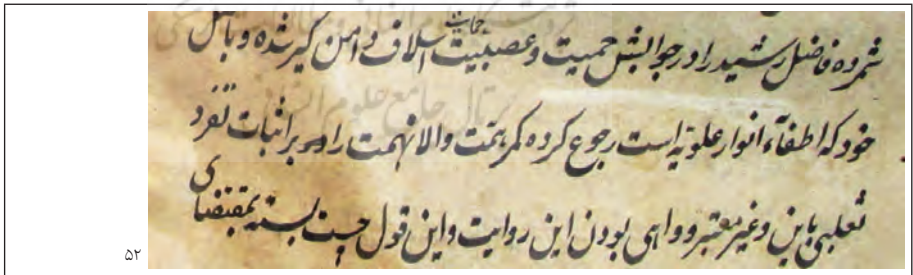 حمایت
شمرده فاضل رشید را در جوابش حمیت و عصبیت اسلاف دامن گیر شده و باصل
خود که اطفاء انوار علویه است رجوع کرده کمر همت والا نهمت را بر اثبات تفرد
ثعلبی باین و غیر معتبر و واهی بودن این روایت و این قول چست بسته بمقتضای
۵۲